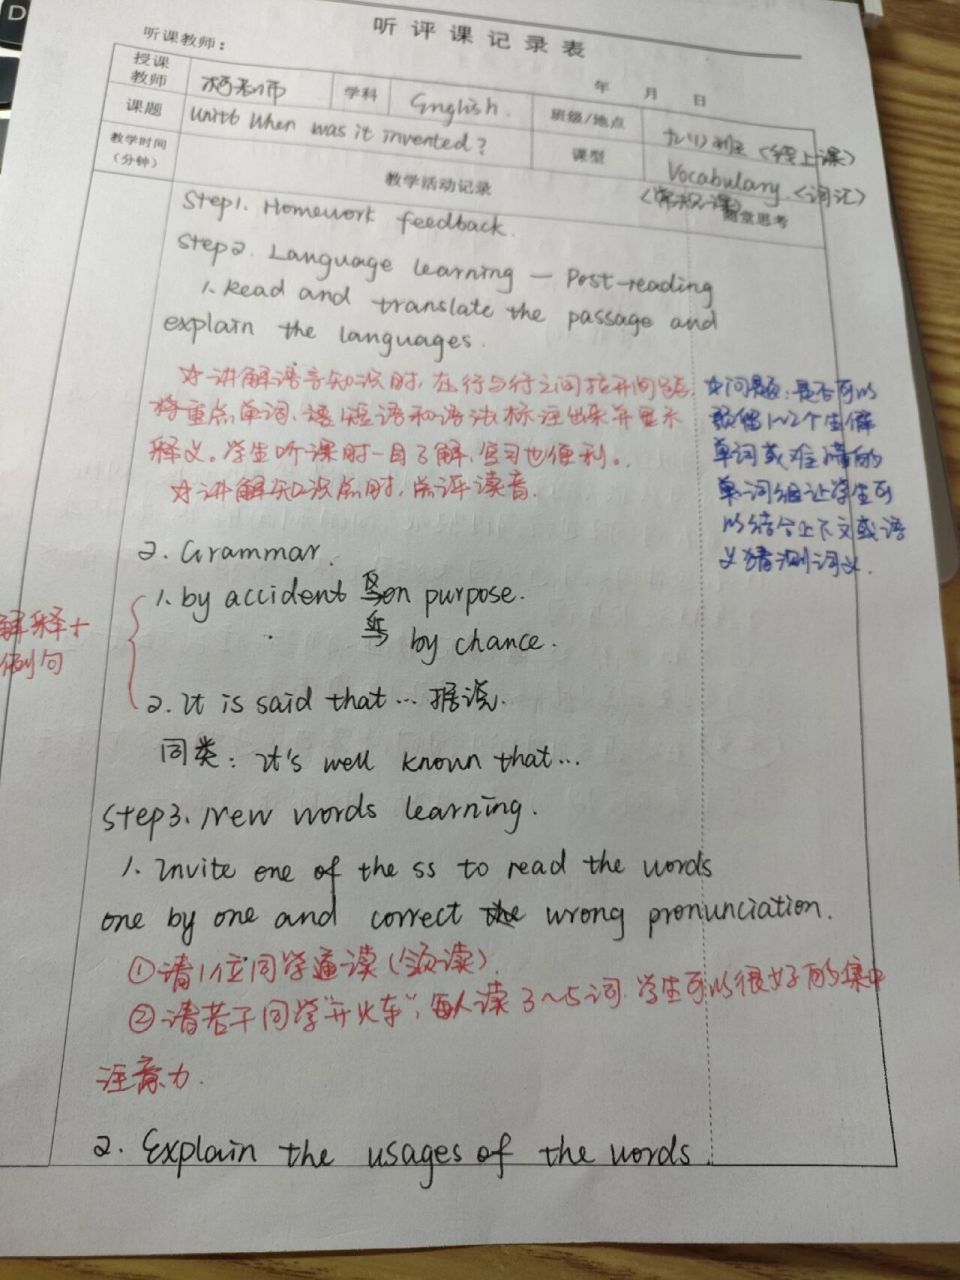 听评课记录表
听课教师：
年 月 日
授课教师 柯老师 学科 English. 班级/地点 九(1)班 (线上课)
课题 Unit6 When was it invented? 课型 Vocabulary (词汇)
教学时间（分钟） 教学活动记录 随堂思考
Step1. Homework feedback.
Step2. Language learning — Post-reading
1. Read and translate the passage and
explain the languages.
☆讲解语言知识时，在行与行之间拉开间距，
将重点单词、短语和语法标注出来并显示
释义。学生听课时一目了解，复习也便利。
☆讲解知识点时，点评读音.
☆问题：是否可以
数偶1~2个生僻
单词或难懂的
单词组让学生可
以结合上下文或语
义猜测词义.
2. Grammar.
解释+
例句
1. by accident 反 on purpose.
by chance.
2. It is said that... 据说.
同类：It's well known that...
Step3. New words learning.
1. Invite one of the ss to read the words
one by one and correct the wrong pronunciation.
①请1位同学通读(领读).
②请若干同学"开火车"，每人读3~5词. 学生可以很好的集中
注意力.
2. Explain the usages of the words.